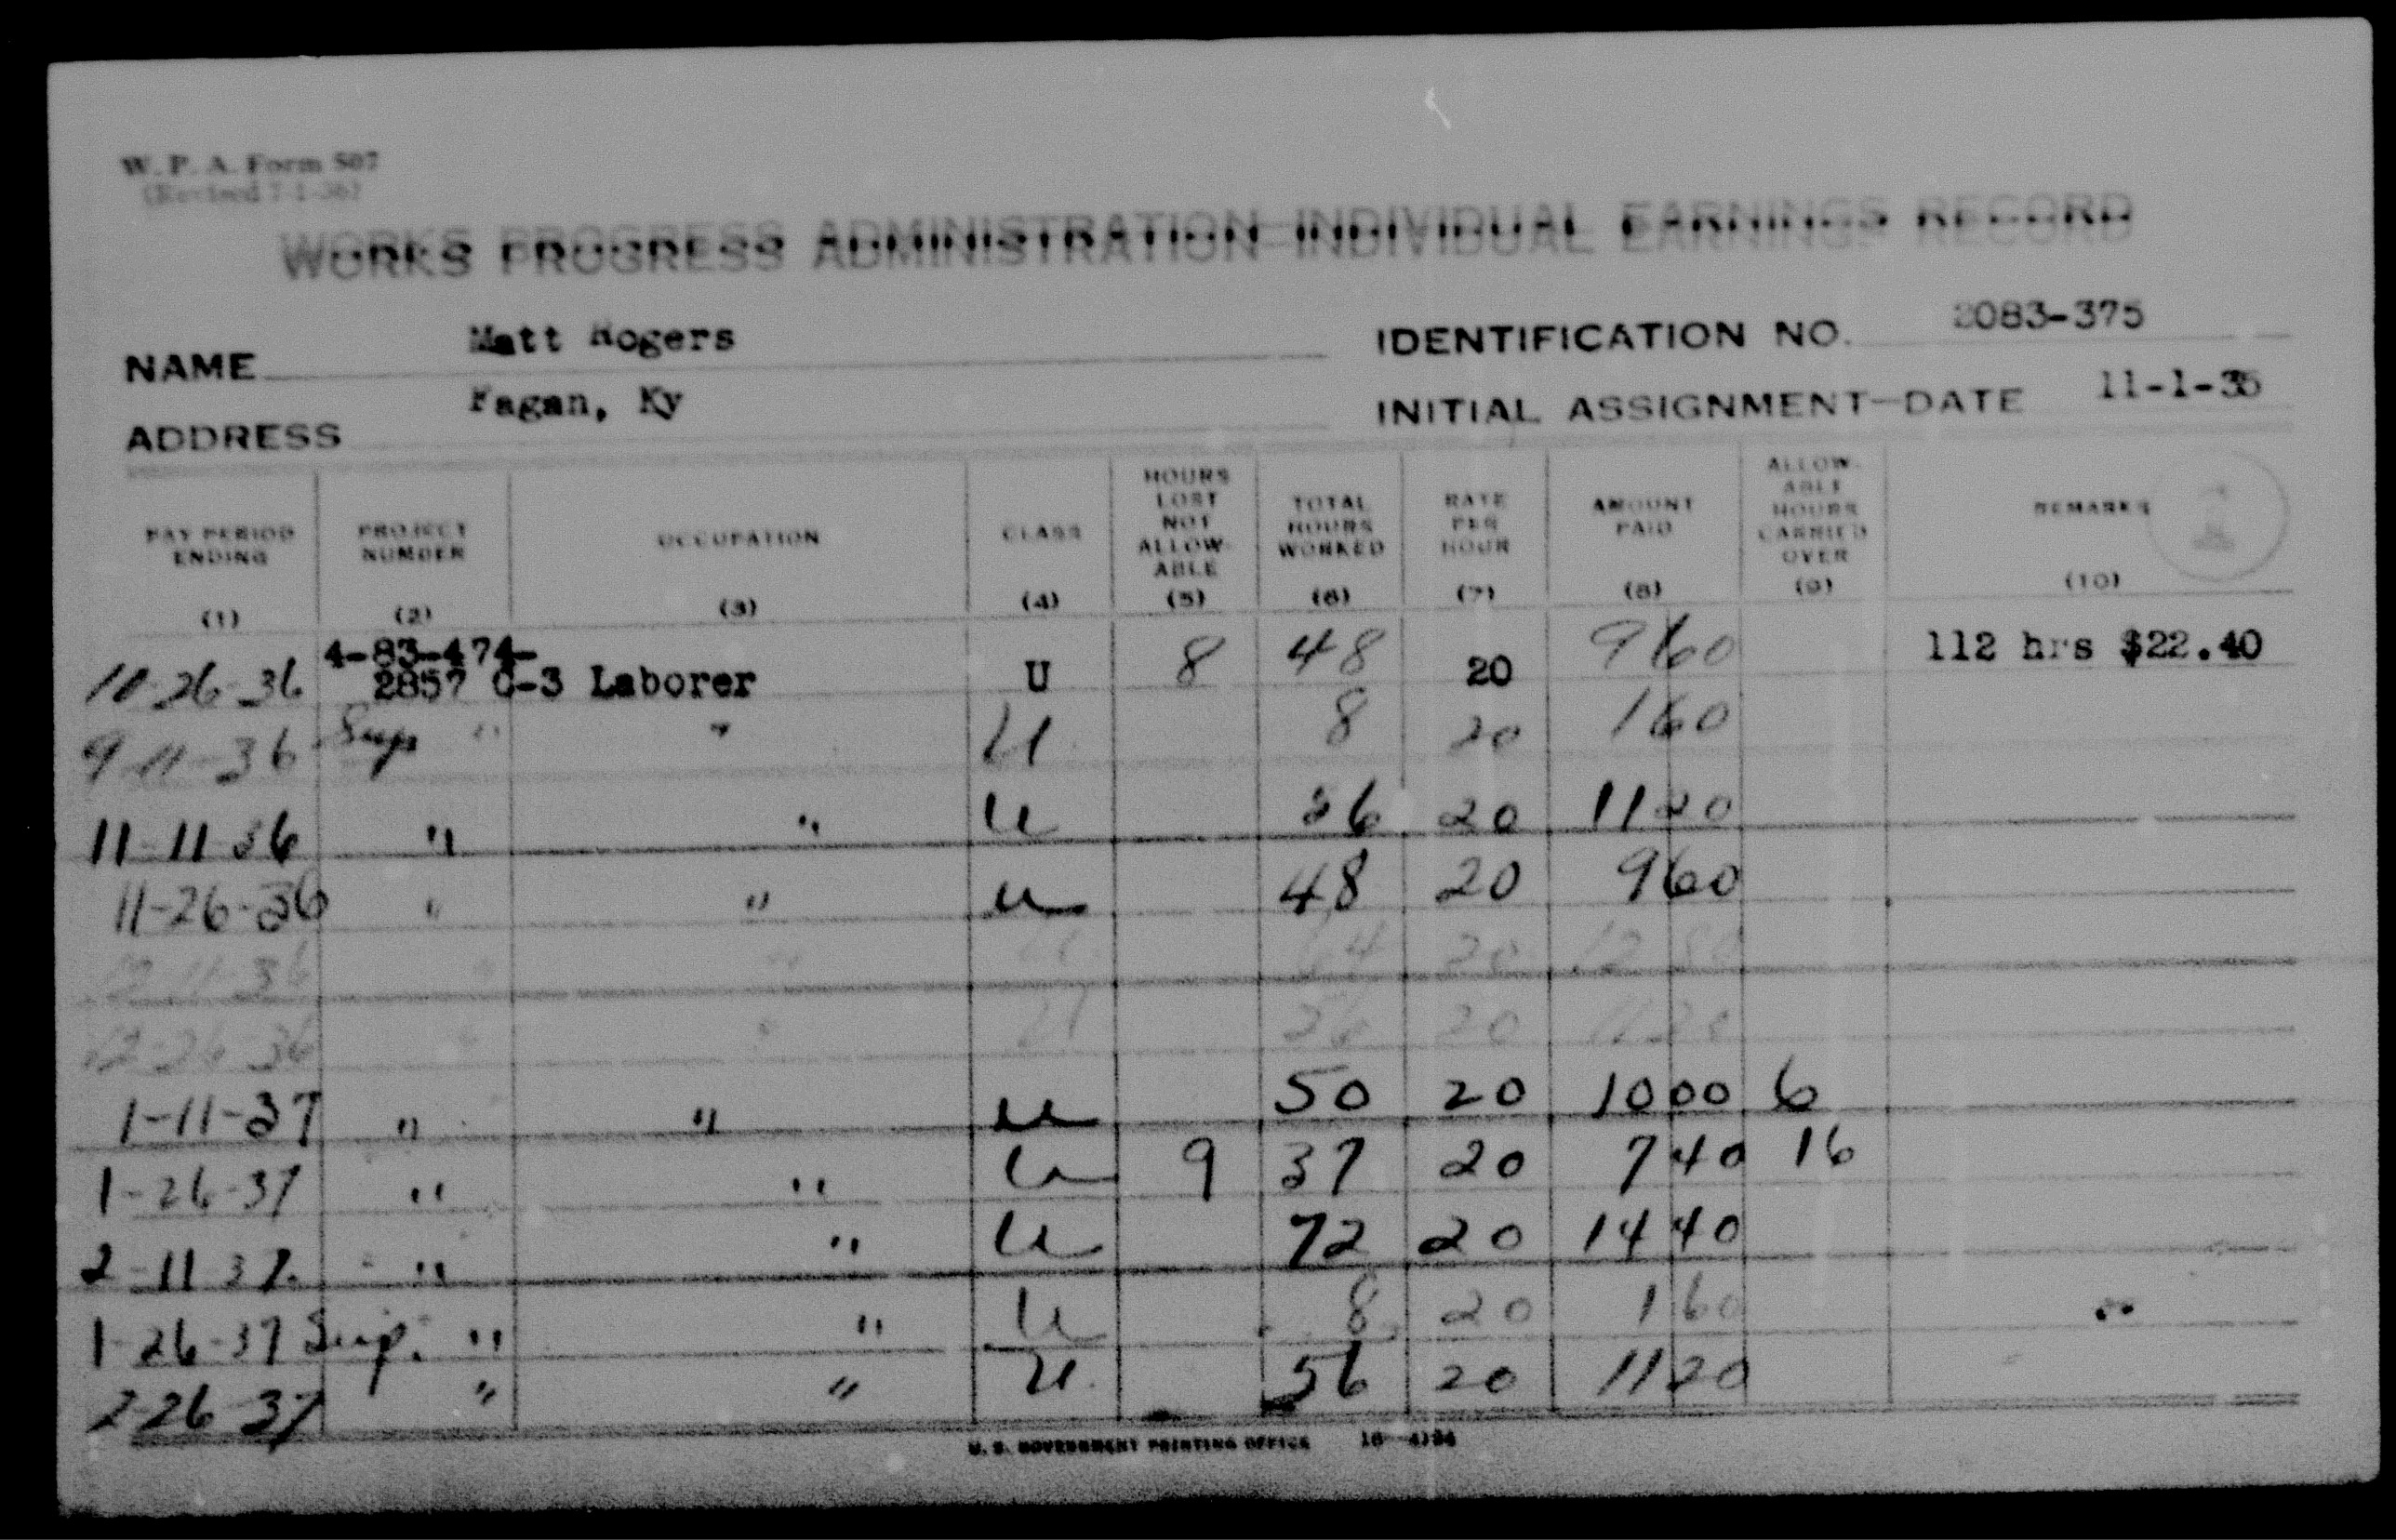 W. P. A. Form 507
(Revised 7-1-36)
WORKS PROGRESS ADMINISTRATION INDIVIDUAL EARNINGS RECORD
NAME Matt Rogers IDENTIFICATION NO. 2083-375
ADDRESS Fagan, Ky INITIAL ASSIGNMENT—DATE 11-1-35
PAY PERIOD ENDING (1) PROJECT NUMBER (2) OCCUPATION (3) CLASS (4) HOURS LOST NOT ALLOWABLE (5) TOTAL HOURS WORKED (6) RATE PER HOUR (7) AMOUNT PAID (8) ALLOWABLE HOURS CARRIED OVER (9) REMARKS (10)
4-83-474-
10-26-36 2857 C-3 Laborer U 8 48 20 9 60 112 hrs $22.40
9-11-36 Sup " " U 8 20 1 60
11-11-36 " " U 56 20 11 20
11-26-36 " " U 48 20 9 60
12-11-36 " " U 64 20 12 80
12-26-36 " " U 56 20 11 20
1-11-37 " " U 50 20 10 00 6
1-26-37 " " U 9 37 20 7 40 16
2-11-37 " " U 72 20 14 40
1-26-37 Sup. " " U 8 20 1 60
2-26-37 " " U 56 20 11 20
U. S. GOVERNMENT PRINTING OFFICE